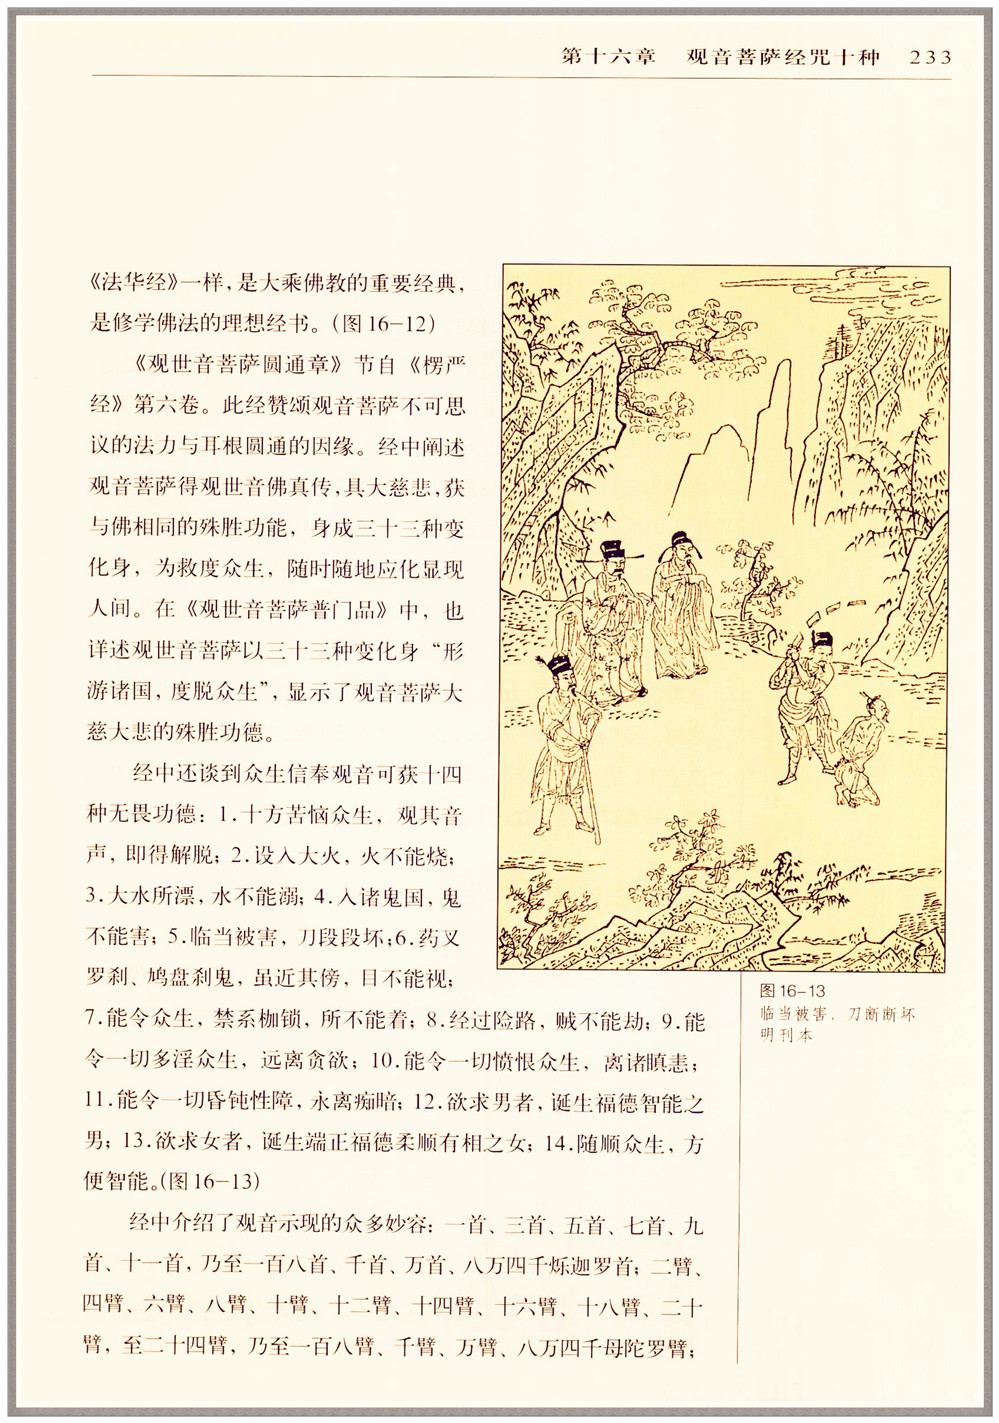 第十六章 观音菩萨经咒十种 233
《法华经》一样，是大乘佛教的重要经典，
是修学佛法的理想经书。（图16-12）
《观世音菩萨圆通章》节自《楞严
经》第六卷。此经赞颂观音菩萨不可思
议的法力与耳根圆通的因缘。经中阐述
观音菩萨得观世音佛真传，具大慈悲，获
与佛相同的殊胜功能，身成三十三种变
化身，为救度众生，随时随地应化显现
人间。在《观世音菩萨普门品》中，也
详述观世音菩萨以三十三种变化身“形
游诸国，度脱众生”，显示了观音菩萨大
慈大悲的殊胜功德。
经中还谈到众生信奉观音可获十四
种无畏功德：1.十方苦恼众生，观其音
声，即得解脱；2.设入大火，火不能烧；
3.大水所漂，水不能溺；4.入诸鬼国，鬼
不能害；5.临当被害，刀段段坏；6.药叉
罗刹、鸠盘刹鬼，虽近其傍，目不能视；
7.能令众生，禁系枷锁，所不能着；8.经过险路，贼不能劫；9.能
令一切多淫众生，远离贪欲；10.能令一切愤恨众生，离诸瞋恚；
11.能令一切昏钝性障，永离痴暗；12.欲求男者，诞生福德智能之
男；13.欲求女者，诞生端正福德柔顺有相之女；14.随顺众生，方
便智能。（图16-13）
经中介绍了观音示现的众多妙容：一首、三首、五首、七首、九
首、十一首，乃至一百八首、千首、万首、八万四千烁迦罗首；二臂、
四臂、六臂、八臂、十臂、十二臂、十四臂、十六臂、十八臂、二十
臂，至二十四臂，乃至一百八臂、千臂、万臂、八万四千母陀罗臂；
图16-13
临当被害，刀断断坏
明刊本